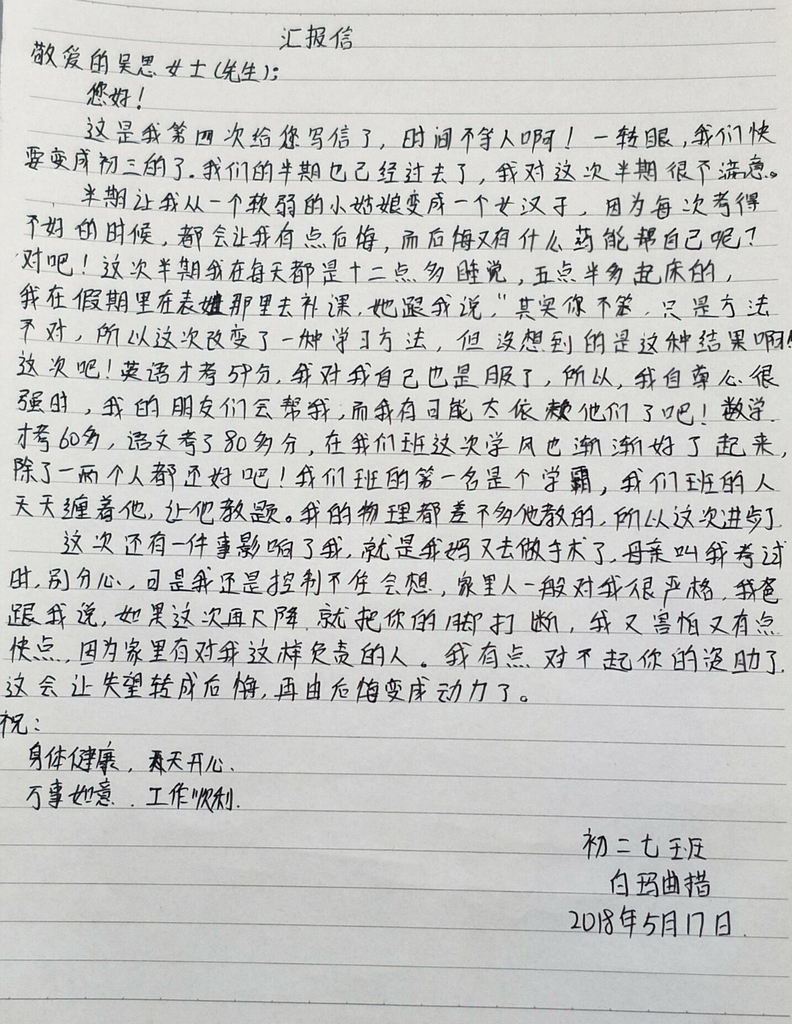 汇报信
敬爱的吴思女士(先生):
您好!
这是我第四次给您写信了,时间不等人啊!一转眼,我们快
要变成初三的了.我们的半期也已经过去了,我对这次半期很不满意。
半期让我从一个软弱的小姑娘变成一个女汉子,因为每次考得
不好的时候,都会让我有点后悔,而后悔又有什么药能帮自己呢?
对吧!这次半期我在每天都是十二点多睡觉,五点半多起床的,
我在假期里在表姐那里去补课,她跟我说,"其实你不笨,只是方法
不对,所以这次改变了一种学习方法,但没想到的是这种结果啊!
这次吧!英语才考59分,我对我自己也是服了,所以,我自卑心很
强时,我的朋友们会帮我,而我有可能太依赖他们了吧!数学
才考60多,语文考了80多分,在我们班这次学风也渐渐好了起来,
除了一两个人都还好吧!我们班的第一名是个学霸,我们班的人
天天缠着他,让他教题。我的物理都差不多他教的,所以这次进步了.
这次还有一件事影响了我,就是我妈又去做手术了,母亲叫我考试
时,别分心,可是我还是控制不住会想,家里人一般对我很严格,我爸
跟我说,如果这次再下降,就把你的脚打断,我又害怕又有点
快点,因为家里有对我这样负责的人。我有点对不起你的资助了.
这会让失望转成后悔,再由后悔变成动力了。
祝:
身体健康,天天开心.
万事如意.工作顺利.
初二七班
白玛曲措
2018年5月17日.